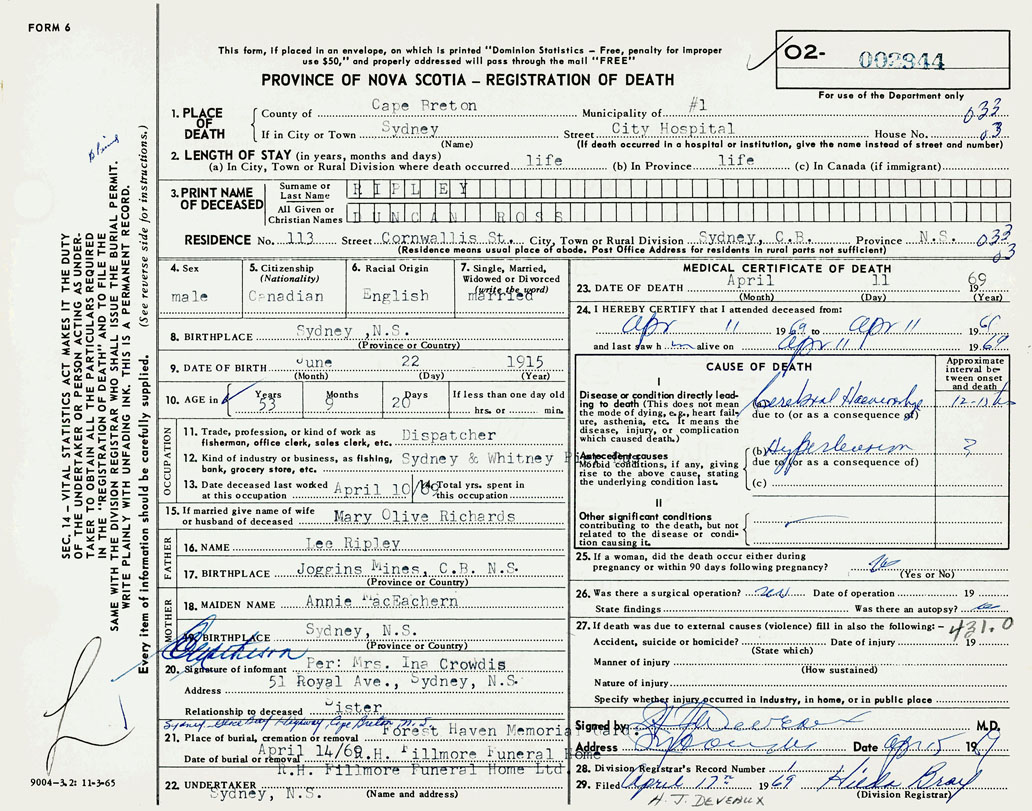 FORM 6
This form, if placed in an envelope, on which is printed "Dominion Statistics – Free, penalty for improper
use $50," and properly addressed will pass through the mail "FREE"
PROVINCE OF NOVA SCOTIA – REGISTRATION OF DEATH
O2- 002844
For use of the Department only
SEC. 14 – VITAL STATISTICS ACT MAKES IT THE DUTY
OF THE UNDERTAKER OR PERSON ACTING AS UNDER-
TAKER TO OBTAIN ALL THE PARTICULARS REQUIRED
IN THE "REGISTRATION OF DEATH" AND TO FILE THE
SAME WITH THE DIVISION REGISTRAR WHO SHALL ISSUE THE BURIAL PERMIT.
WRITE PLAINLY WITH UNFADING INK. THIS IS A PERMANENT RECORD.
Every item of information should be carefully supplied. (See reverse side for instructions.)
1. PLACE OF DEATH
County of Cape Breton Municipality of #1 033
If in City or Town Sydney Street City Hospital House No. 03
(Name) (If death occurred in a hospital or institution, give the name instead of street and number)
2. LENGTH OF STAY (in years, months and days)
(a) In City, Town or Rural Division where death occurred life (b) In Province life (c) In Canada (if immigrant)
3. PRINT NAME OF DECEASED
Surname or Last Name RIPLEY
All Given or Christian Names DUNCAN ROSS
RESIDENCE No. 113 Street Cornwallis St. City, Town or Rural Division Sydney, C.B. Province N.S. 033
(Residence means usual place of abode. Post Office Address for residents in rural parts not sufficient) 03
4. Sex male
5. Citizenship (Nationality) Canadian
6. Racial Origin English
7. Single, Married, Widowed or Divorced (write the word) married
8. BIRTHPLACE Sydney ,N.S.
(Province or Country)
9. DATE OF BIRTH June 22 1915
(Month) (Day) (Year)
10. AGE in Years 53 Months 9 Days 20 If less than one day old hrs. or min.
OCCUPATION
11. Trade, profession, or kind of work as fisherman, office clerk, sales clerk, etc. Dispatcher
12. Kind of industry or business, as fishing, bank, grocery store, etc. Sydney & Whitney
13. Date deceased last worked at this occupation April 10/69
14. Total yrs. spent in this occupation
15. If married give name of wife or husband of deceased Mary Olive Richards
FATHER
16. NAME Lee Ripley
17. BIRTHPLACE Joggins Mines, C.B. N.S.
(Province or Country)
MOTHER
18. MAIDEN NAME Annie MacEachern
19. BIRTHPLACE Sydney, N.S.
(Province or Country)
20. Signature of informant Per: Mrs. Ina Crowdis
Address 51 Royal Ave., Sydney, N.S.
Relationship to deceased Sister
Sydney-Glace Bay Highway, Cape Breton, N.S.
21. Place of burial, cremation or removal Forest Haven Memorial Gard.
Date of burial or removal April 14/69 R.H. Fillmore Funeral Home
R.H. Fillmore Funeral Home Ltd.
22. UNDERTAKER Sydney, N.S.
(Name and address)
9004–3.2: 11-3-65
MEDICAL CERTIFICATE OF DEATH
23. DATE OF DEATH April 11 1969
(Month) (Day) (Year)
24. I HEREBY CERTIFY that I attended deceased from:
Apr 11 1969 to Apr 11 1969
and last saw h im alive on Apr 11 1969
CAUSE OF DEATH
Approximate interval between onset and death
I
Disease or condition directly leading to death (This does not mean the mode of dying, e.g., heart failure, asthenia, etc. It means the disease, injury, or complication which caused death.)
(a) Cerebral Haemorrhage
due to (or as a consequence of)
Antecedent causes
Morbid conditions, if any, giving rise to the above cause, stating the underlying condition last.
(b) Hypertension ?
due to (or as a consequence of)
(c)
II
Other significant conditions
contributing to the death, but not related to the disease or condition causing it.
25. If a woman, did the death occur either during
pregnancy or within 90 days following pregnancy?
(Yes or No)
26. Was there a surgical operation? no Date of operation 19
State findings Was there an autopsy? no
27. If death was due to external causes (violence) fill in also the following: – 431.0
Accident, suicide or homicide? Date of injury 19
(State which)
Manner of injury
(How sustained)
Nature of injury
Specify whether injury occurred in industry, in home, or in public place
Signed by M.D.
Address Sydney Date 1969
28. Division Registrar's Record Number
29. Filed April 17th 1969 Hilda Bray
(Division Registrar)
H. J. DEVEAUX